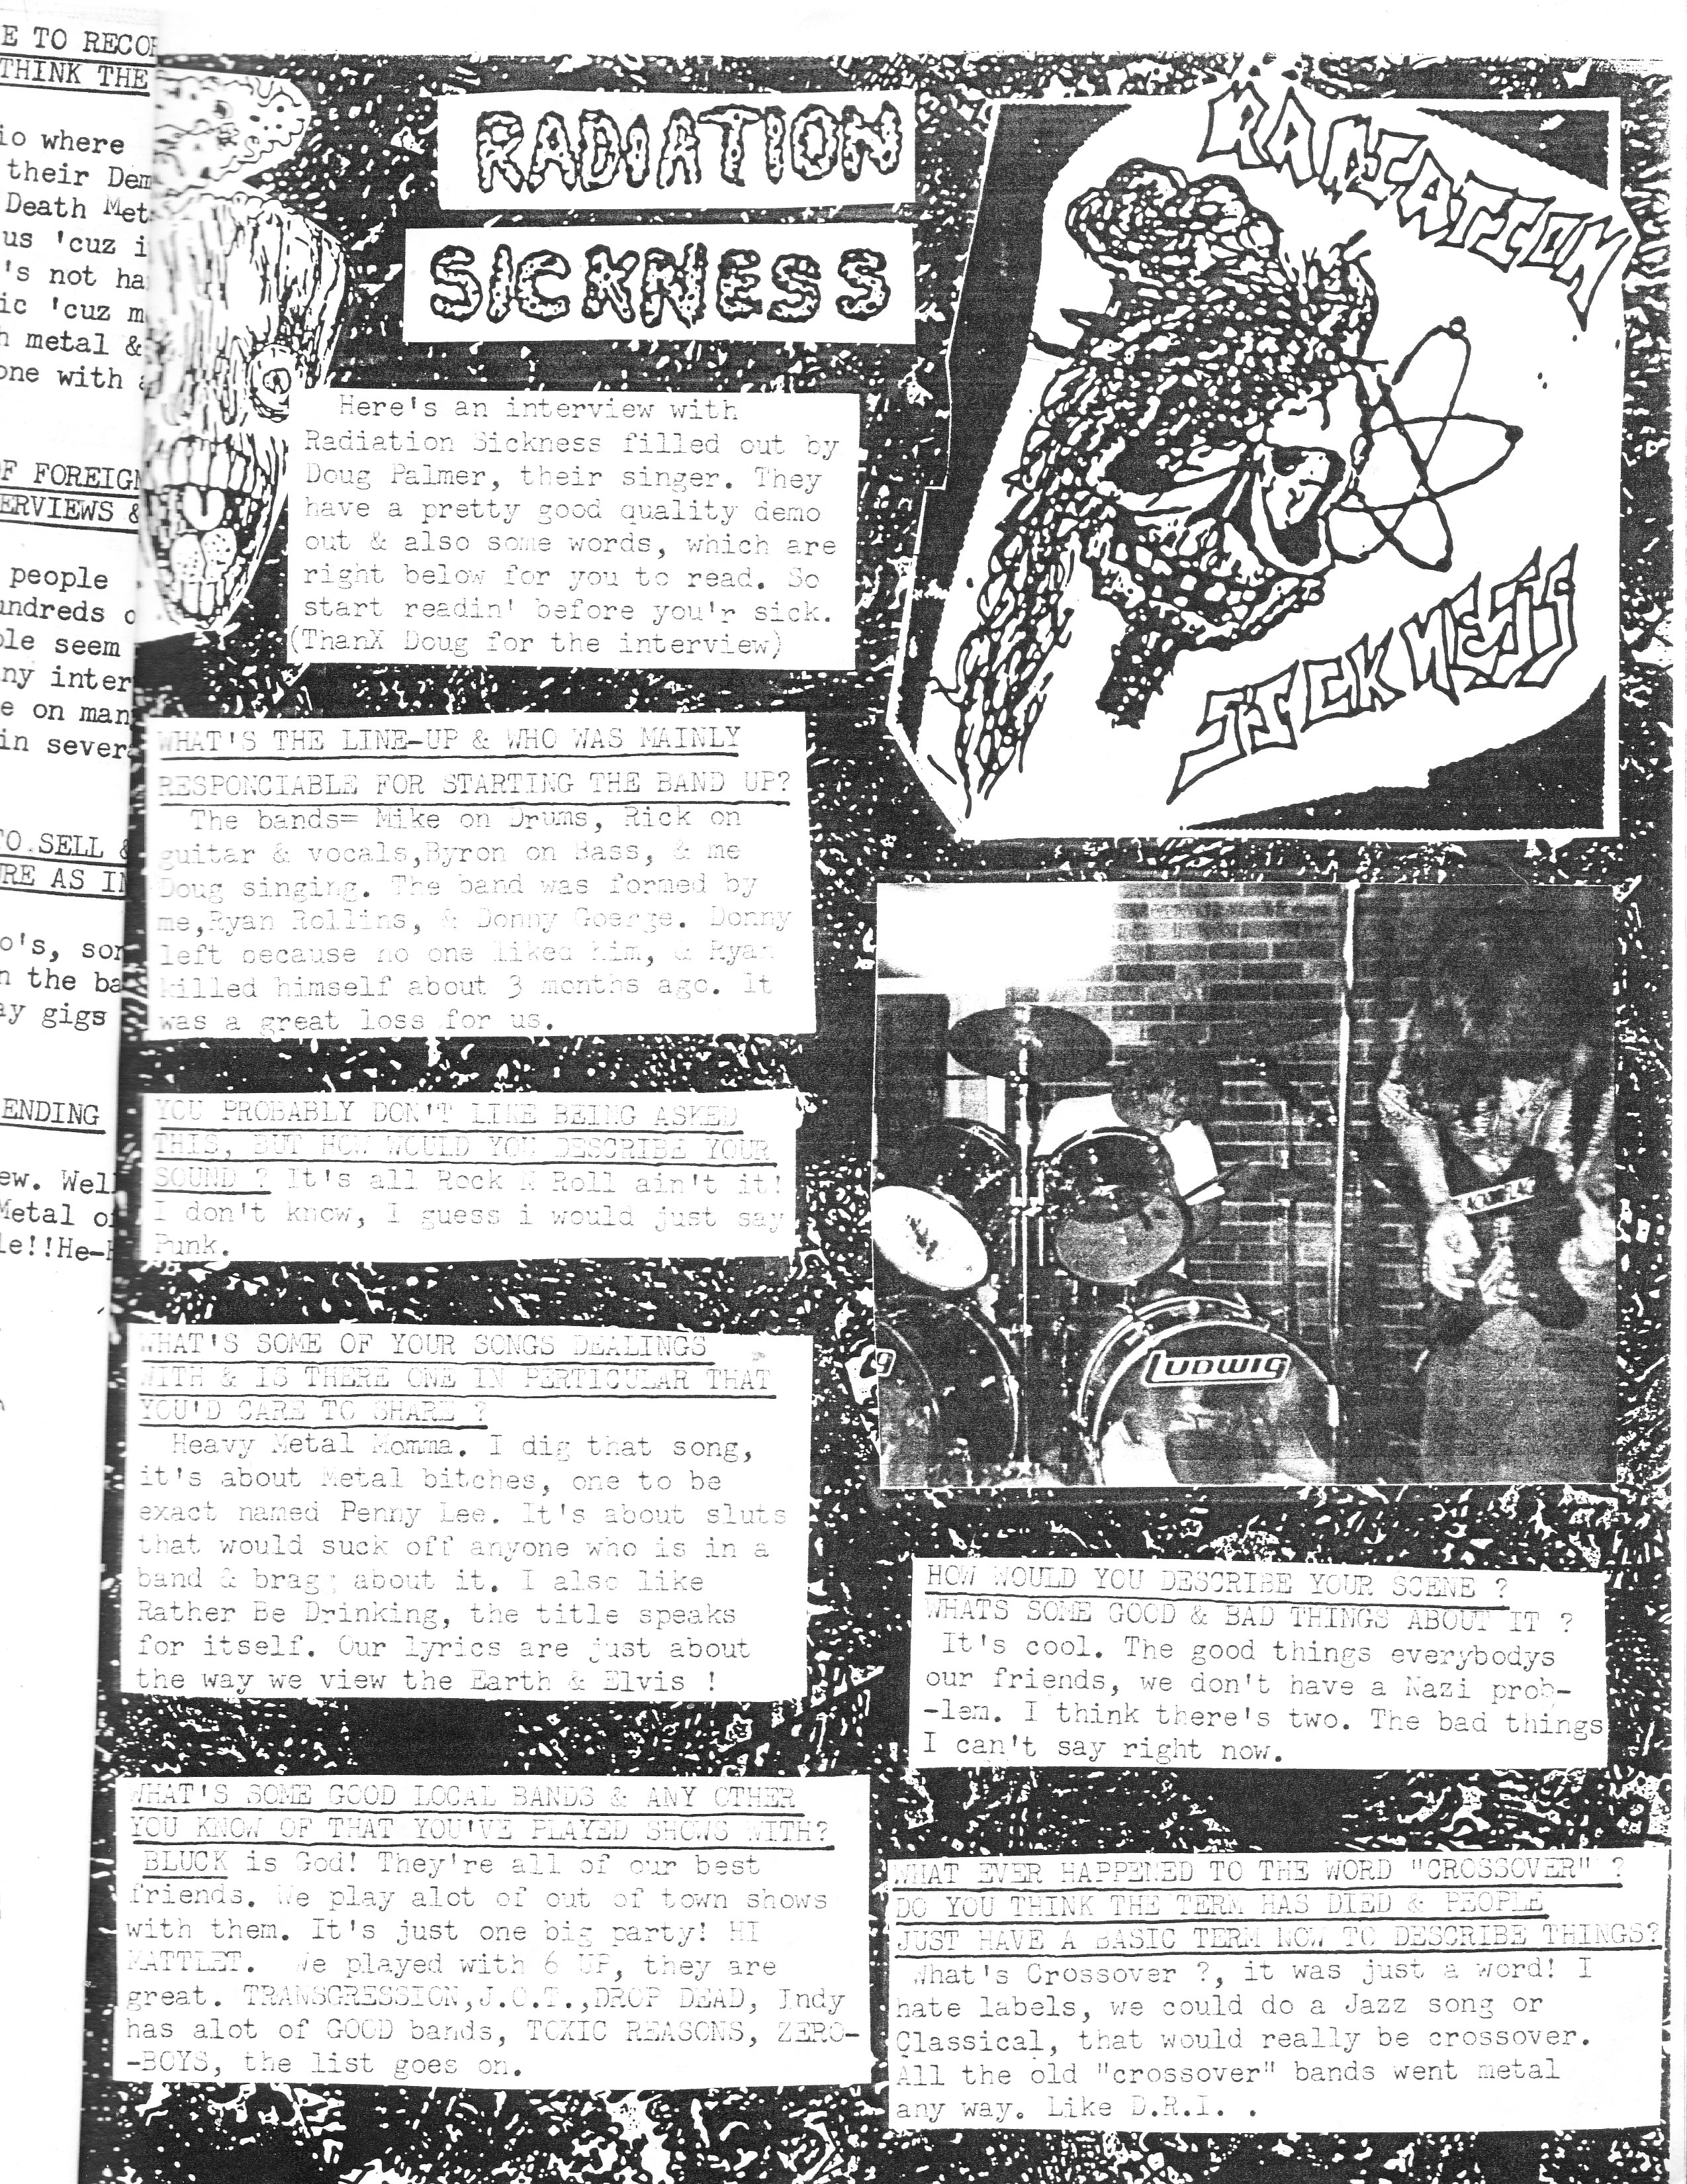 E TO RECOR
THINK THE
io where
their Dem
Death Met
us 'cuz i
's not ha
ic 'cuz m
h metal &
one with a
F FOREIGN
ERVIEWS &
people
undreds o
ple seem
ny inter
e on man
in sever
TO.SELL &
RE AS IN
o's, son
n the ba
ay gigs
ENDING
ew. Well
Metal of
le!!He-H
RADIATION
SICKNESS
RADIATION
SICKNESS
Here's an interview with
Radiation Sickness filled out by
Doug Palmer, their singer. They
have a pretty good quality demo
out & also some words, which are
right below for you to read. So
start readin' before you'r sick.
(ThanX Doug for the interview)
WHAT'S THE LINE-UP & WHO WAS MAINLY
RESPONCIABLE FOR STARTING THE BAND UP?
The bands= Mike on Drums, Rick on
guitar & vocals,Byron on Bass, & me
Doug singing. The band was formed by
me,Ryan Rollins, & Donny Goerge. Donny
left because no one liked him, & Ryan
killed himself about 3 months ago. It
was a great loss for us.
YOU PROBABLY DON'T LIKE BEING ASKED
THIS, BUT HOW WOULD YOU DESCRIBE YOUR
SOUND ? It's all Rock N Roll ain't it!
I don't know, I guess i would just say
Punk.
WHAT'S SOME OF YOUR SONGS DEALINGS
WITH & IS THERE ONE IN PERTICULAR THAT
YOU'D CARE TO SHARE ?
Heavy Metal Momma. I dig that song,
it's about Metal bitches, one to be
exact named Penny Lee. It's about sluts
that would suck off anyone who is in a
band & bragg about it. I also like
Rather Be Drinking, the title speaks
for itself. Our lyrics are just about
the way we view the Earth & Elvis !
WHAT'S SOME GOOD LOCAL BANDS & ANY OTHER
YOU KNOW OF THAT YOU'VE PLAYED SHOWS WITH?
BLUCK is God! They're all of our best
friends. We play alot of out of town shows
with them. It's just one big party! HI
We played with 6 UP, they are
great. TRANSGRESSION,J.O.T.,DROP DEAD, Indy
has alot of GOOD bands, TOXIC REASONS, ZERO-
-BOYS, the list goes on.
LUDWIG
HOW WOULD YOU DESCRIBE YOUR SCENE ?
WHATS SOME GOOD & BAD THINGS ABOUT IT ?
It's cool. The good things everybodys
our friends, we don't have a Nazi prob-
-lem. I think there's two. The bad things
I can't say right now.
WHAT EVER HAPPENED TO THE WORD "CROSSOVER" ?
DO YOU THINK THE TERM HAS DIED & PEOPLE
JUST HAVE A BASIC TERM NOW TO DESCRIBE THINGS?
What's Crossover ?, it was just a word! I
hate labels, we could do a Jazz song or
Classical, that would really be crossover.
All the old "crossover" bands went metal
any way. Like D.R.I. .